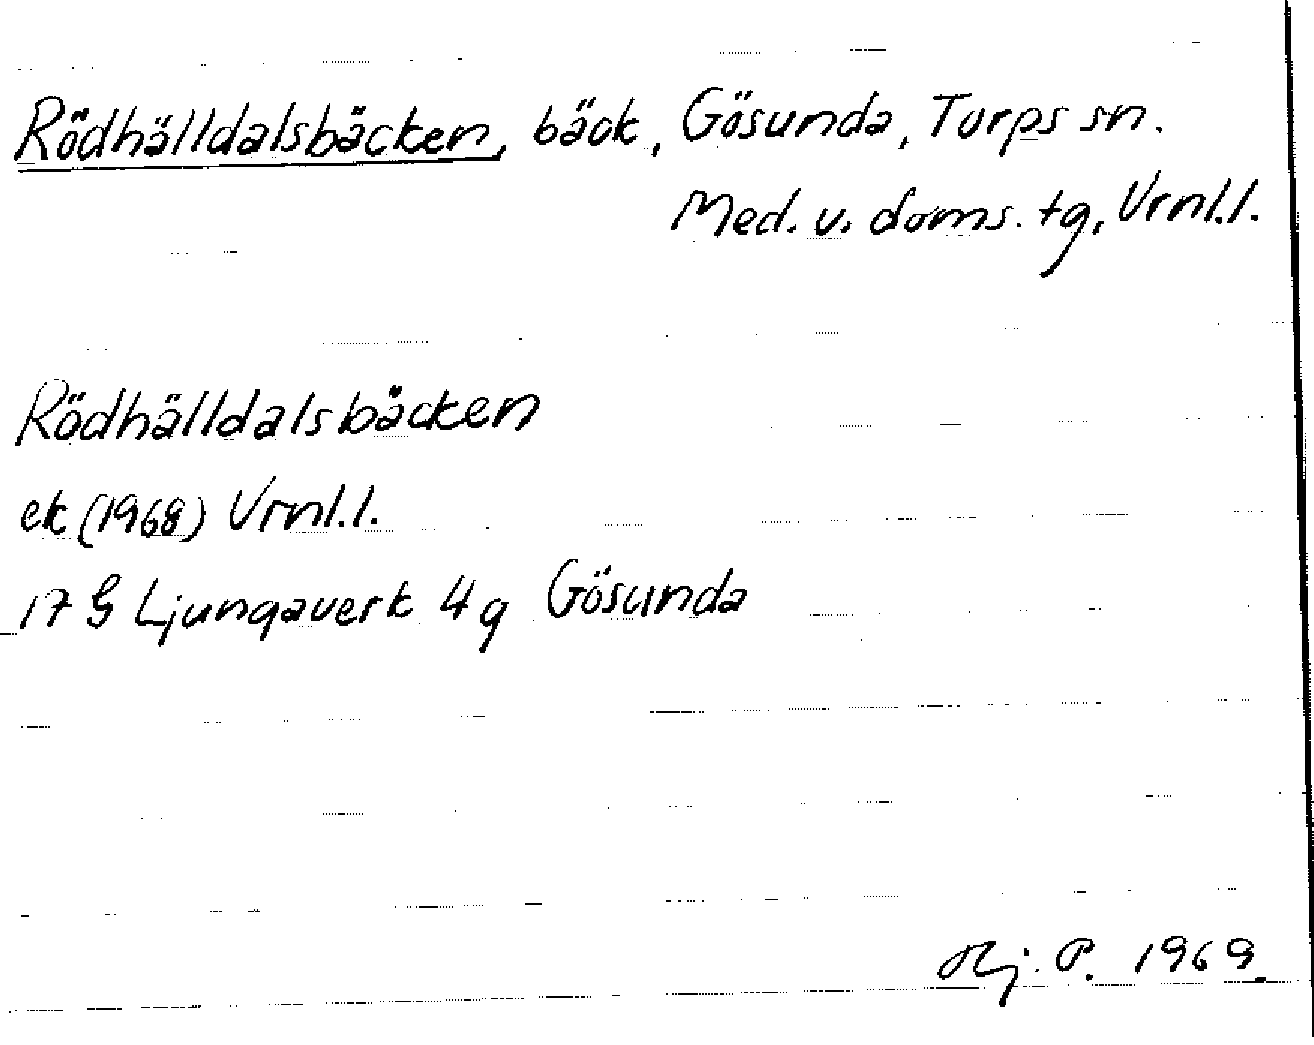 Rödhälldalsbäcken, bäck, Gösunda, Torps sn.
Med. v. doms. tg, Vrnl.l.
Rödhälldalsbäcken
ek (1968) Vrnl.l.
17 G Ljungaverk 4g Gösunda
Hj. P. 1969.